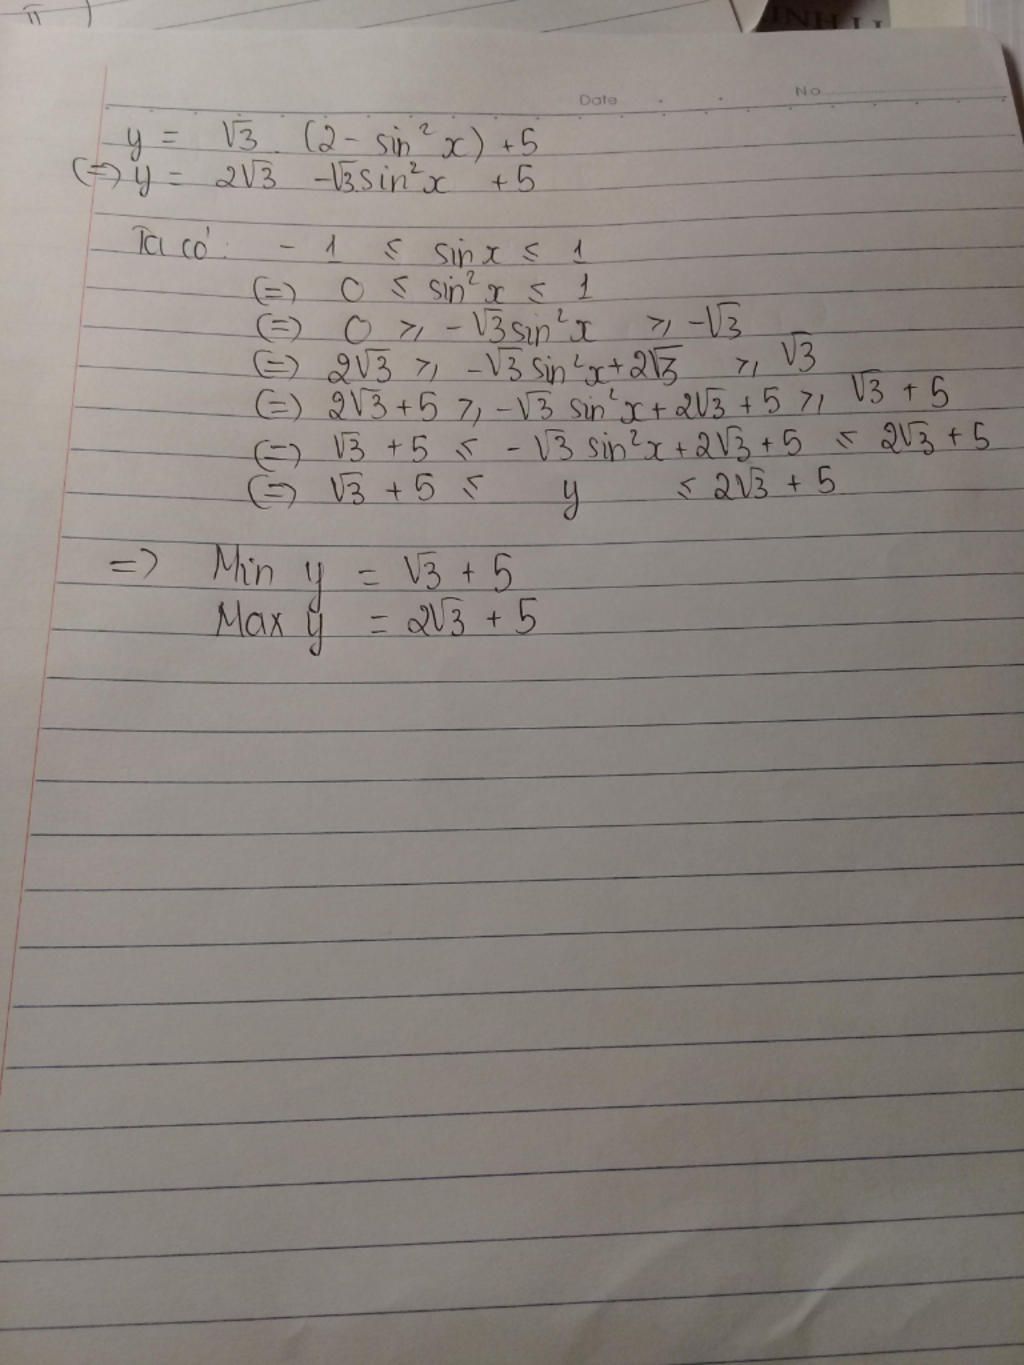 INH LÍ
π )
Date No
y = √3 . (2 - sin² x) + 5
(=) y = 2√3 - √3 sin² x + 5
Ta có: - 1 ≤ sin x ≤ 1
(=) 0 ≤ sin² x ≤ 1
(=) 0 ≥ - √3 sin² x ≥ - √3
(=) 2√3 ≥ - √3 sin² x + 2√3 ≥ √3
(=) 2√3 + 5 ≥ - √3 sin² x + 2√3 + 5 ≥ √3 + 5
(=) √3 + 5 ≤ - √3 sin² x + 2√3 + 5 ≤ 2√3 + 5
(=) √3 + 5 ≤ y ≤ 2√3 + 5
=) Min y = √3 + 5
Max y = 2√3 + 5